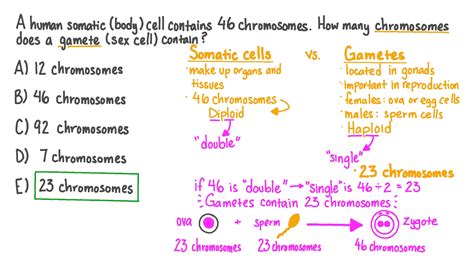 A human somatic (body) cell contains 46 chromosomes. How many chromosomes
does a gamete (sex cell) contain?
A) 12 chromosomes
B) 46 chromosomes
C) 92 chromosomes
D) 7 chromosomes
E) 23 chromosomes
Somatic cells
· make up organs and
tissues
· 46 chromosomes
Diploid
"double"
vs.
Gametes
· located in gonads
· important in reproduction
· females: ova or egg cells
· males: sperm cells
· Haploid
"single"
· 23 chromosomes
if 46 is "double" → "single" is 46 ÷ 2 = 23
Gametes contain 23 chromosomes.
ova + sperm → zygote
23 chromosomes 23 chromosomes 46 chromosomes